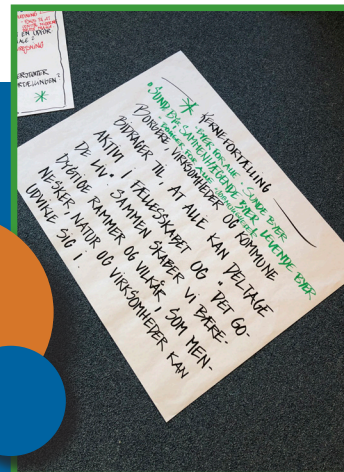 EN UDPOR
KERNEFORTÆLLING
BYER FOR ALLE SUNDE BYER
SUND BY SAMMENHÆNGENDE BYER LEVENDE BYER
BORGERE, VIRKSOMHEDER OG KOMMUNE
BIDRAGER TIL, AT ALLE KAN DELTAGE
AKTIVT I FÆLLESSKABET OG "DET GO-
DE LIV". SAMMEN SKABER VI BÆRE-
DYGTIGE RAMMER OG VILKÅR, SOM MEN-
NESKER, NATUR OG VIRKSOMHEDER KAN
UDVIKLE SIG I.